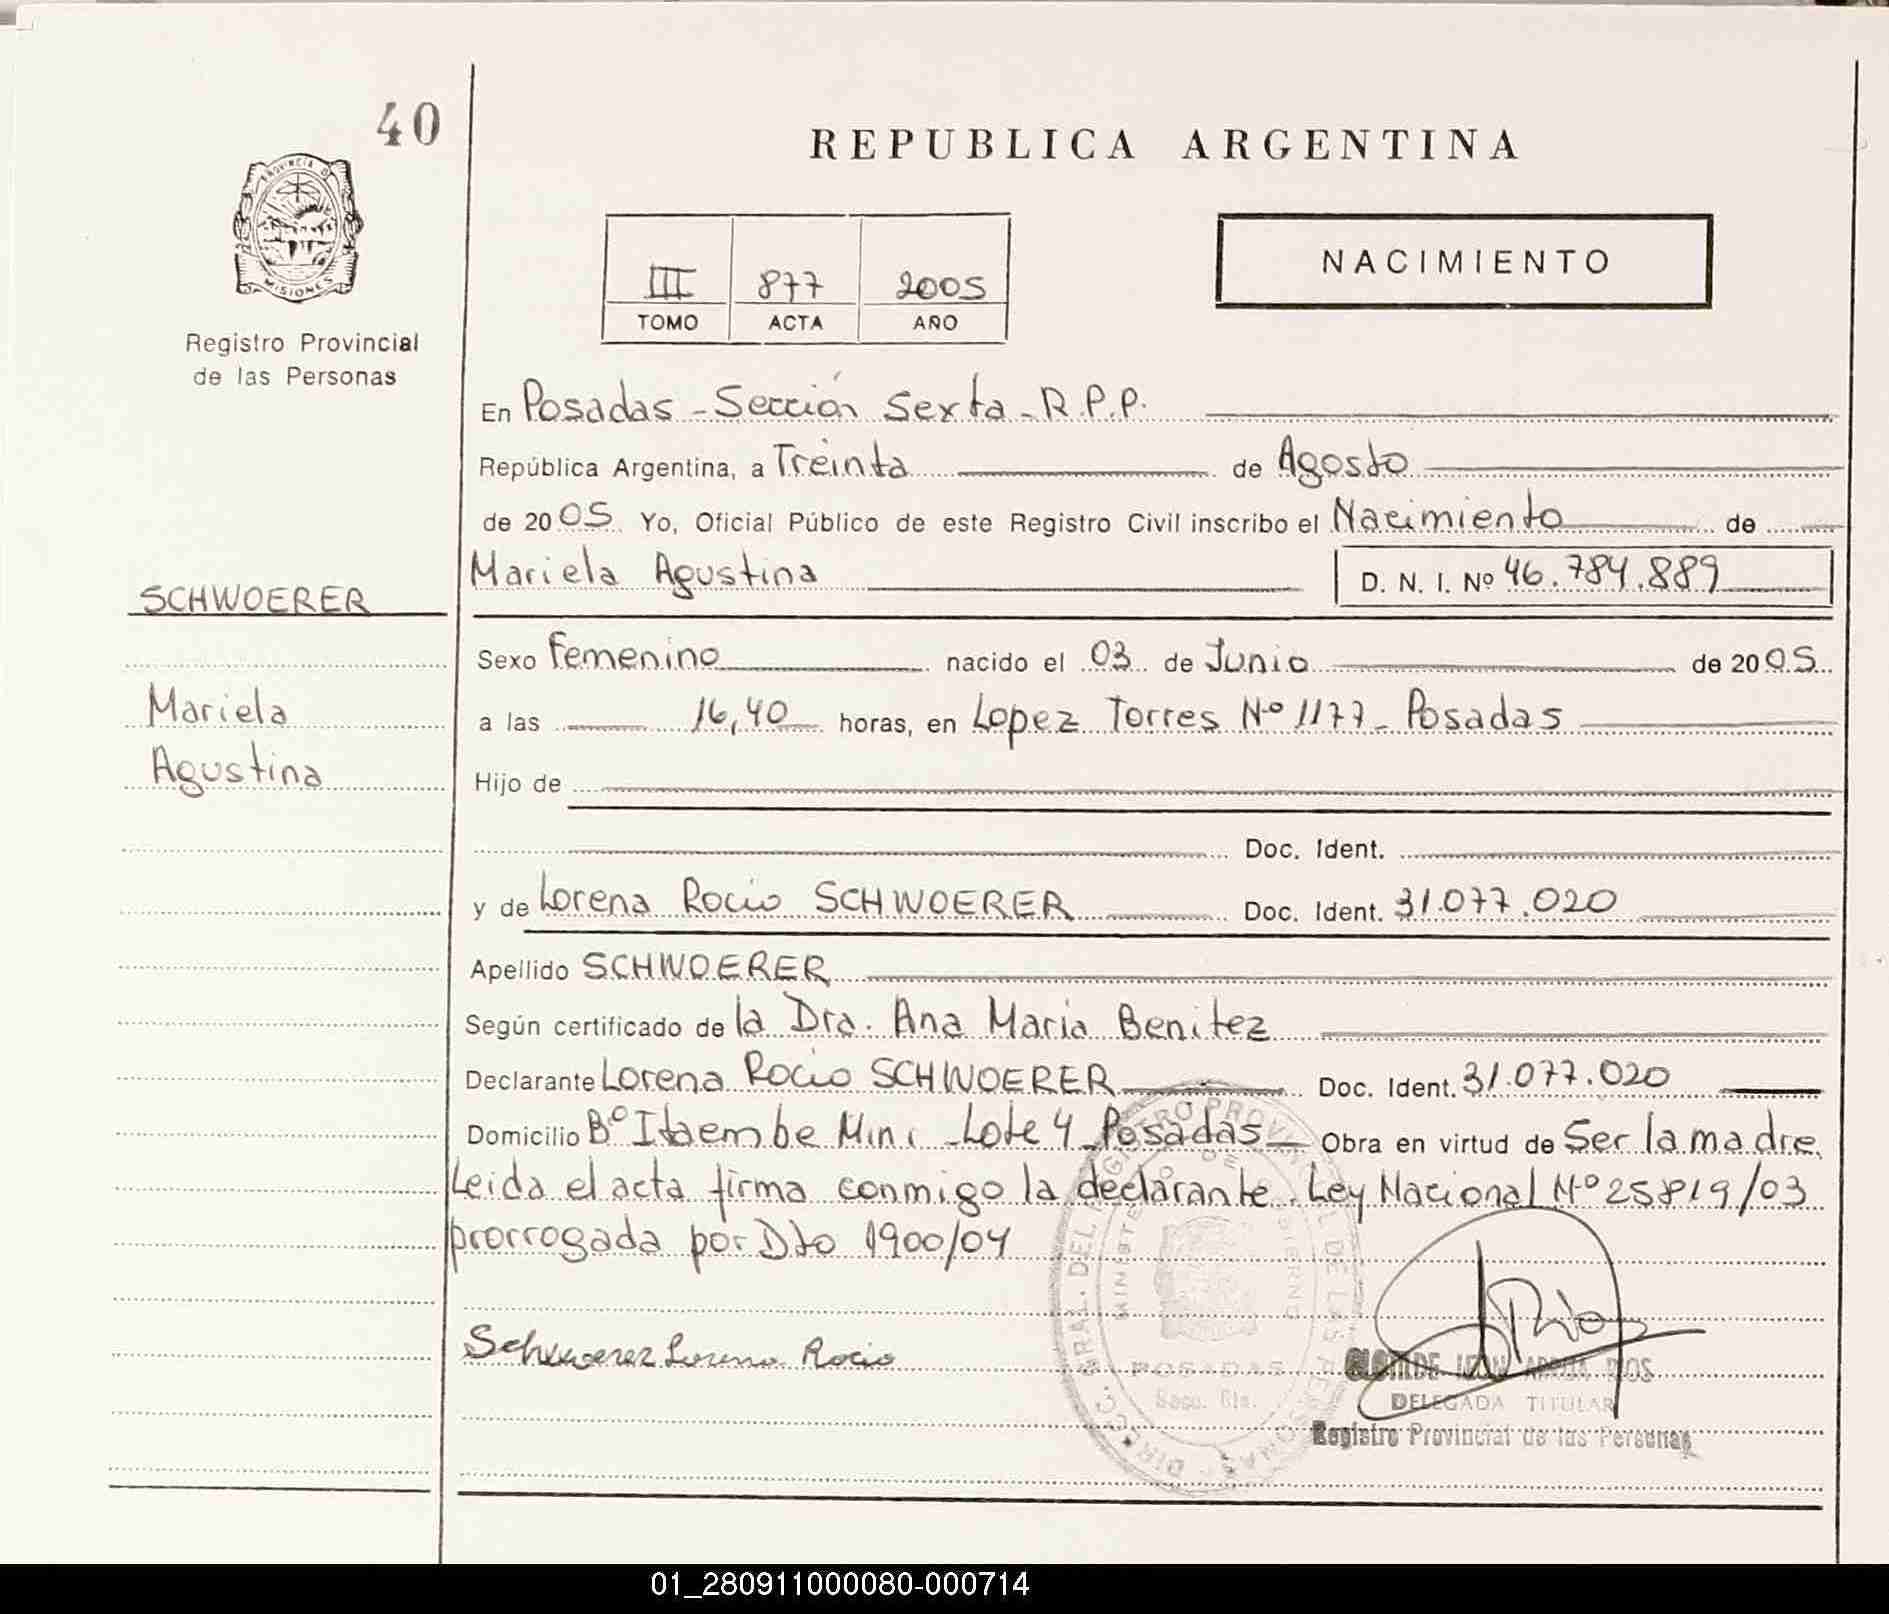 40
REPUBLICA ARGENTINA
PROVINCIA DE
MISIONES
Registro Provincial
de las Personas
III 877 2005
TOMO ACTA AÑO
NACIMIENTO
En Posadas - Sección Sexta - R.P.P.
República Argentina, a Treinta de Agosto
de 2005 Yo, Oficial Público de este Registro Civil inscribo el Nacimiento de
Mariela Agustina D. N. I. Nº 46.784.889
SCHWOERER
Mariela
Agustina
Sexo Femenino nacido el 03 de Junio de 2005
a las 16,40 horas, en Lopez Torres Nº 1177 - Posadas
Hijo de
Doc. Ident.
y de Lorena Rocio SCHWOERER Doc. Ident. 31.077.020
Apellido SCHWOERER
Según certificado de la Dra. Ana Maria Benitez
Declarante Lorena Rocio SCHWOERER Doc. Ident. 31.077.020
Domicilio Bº Itaembe Mini - Lote 4 - Posadas Obra en virtud de Ser la madre.
Leida el acta firma conmigo la declarante. Ley Nacional Nº 25819/03
prorrogada por Dto 1900/04
Schwoerer Lorena Rocio
POSADAS
DELEGADA TITULAR
Registro Provincial de las Personas
01_280911000080-000714